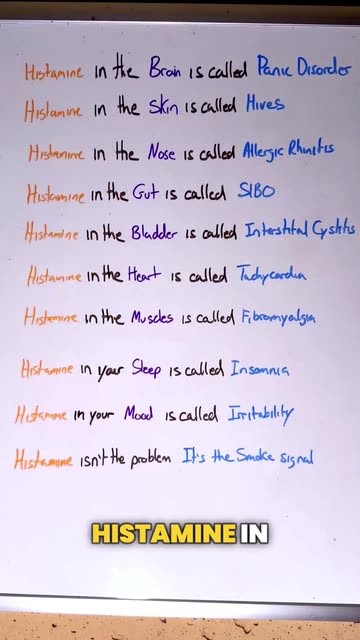 Histamine in the Brain is called Panic Disorder
Histamine in the Skin is called Hives
Histamine in the Nose is called Allergic Rhinitis
Histamine in the Gut is called SIBO
Histamine in the Bladder is called Interstitial Cystitis
Histamine in the Heart is called Tachycardia
Histamine in the Muscles is called Fibromyalgia
Histamine in your Sleep is called Insomnia
Histamine in your Mood is called Irritability
Histamine isn't the problem It's the Smoke signal
HISTAMINE IN